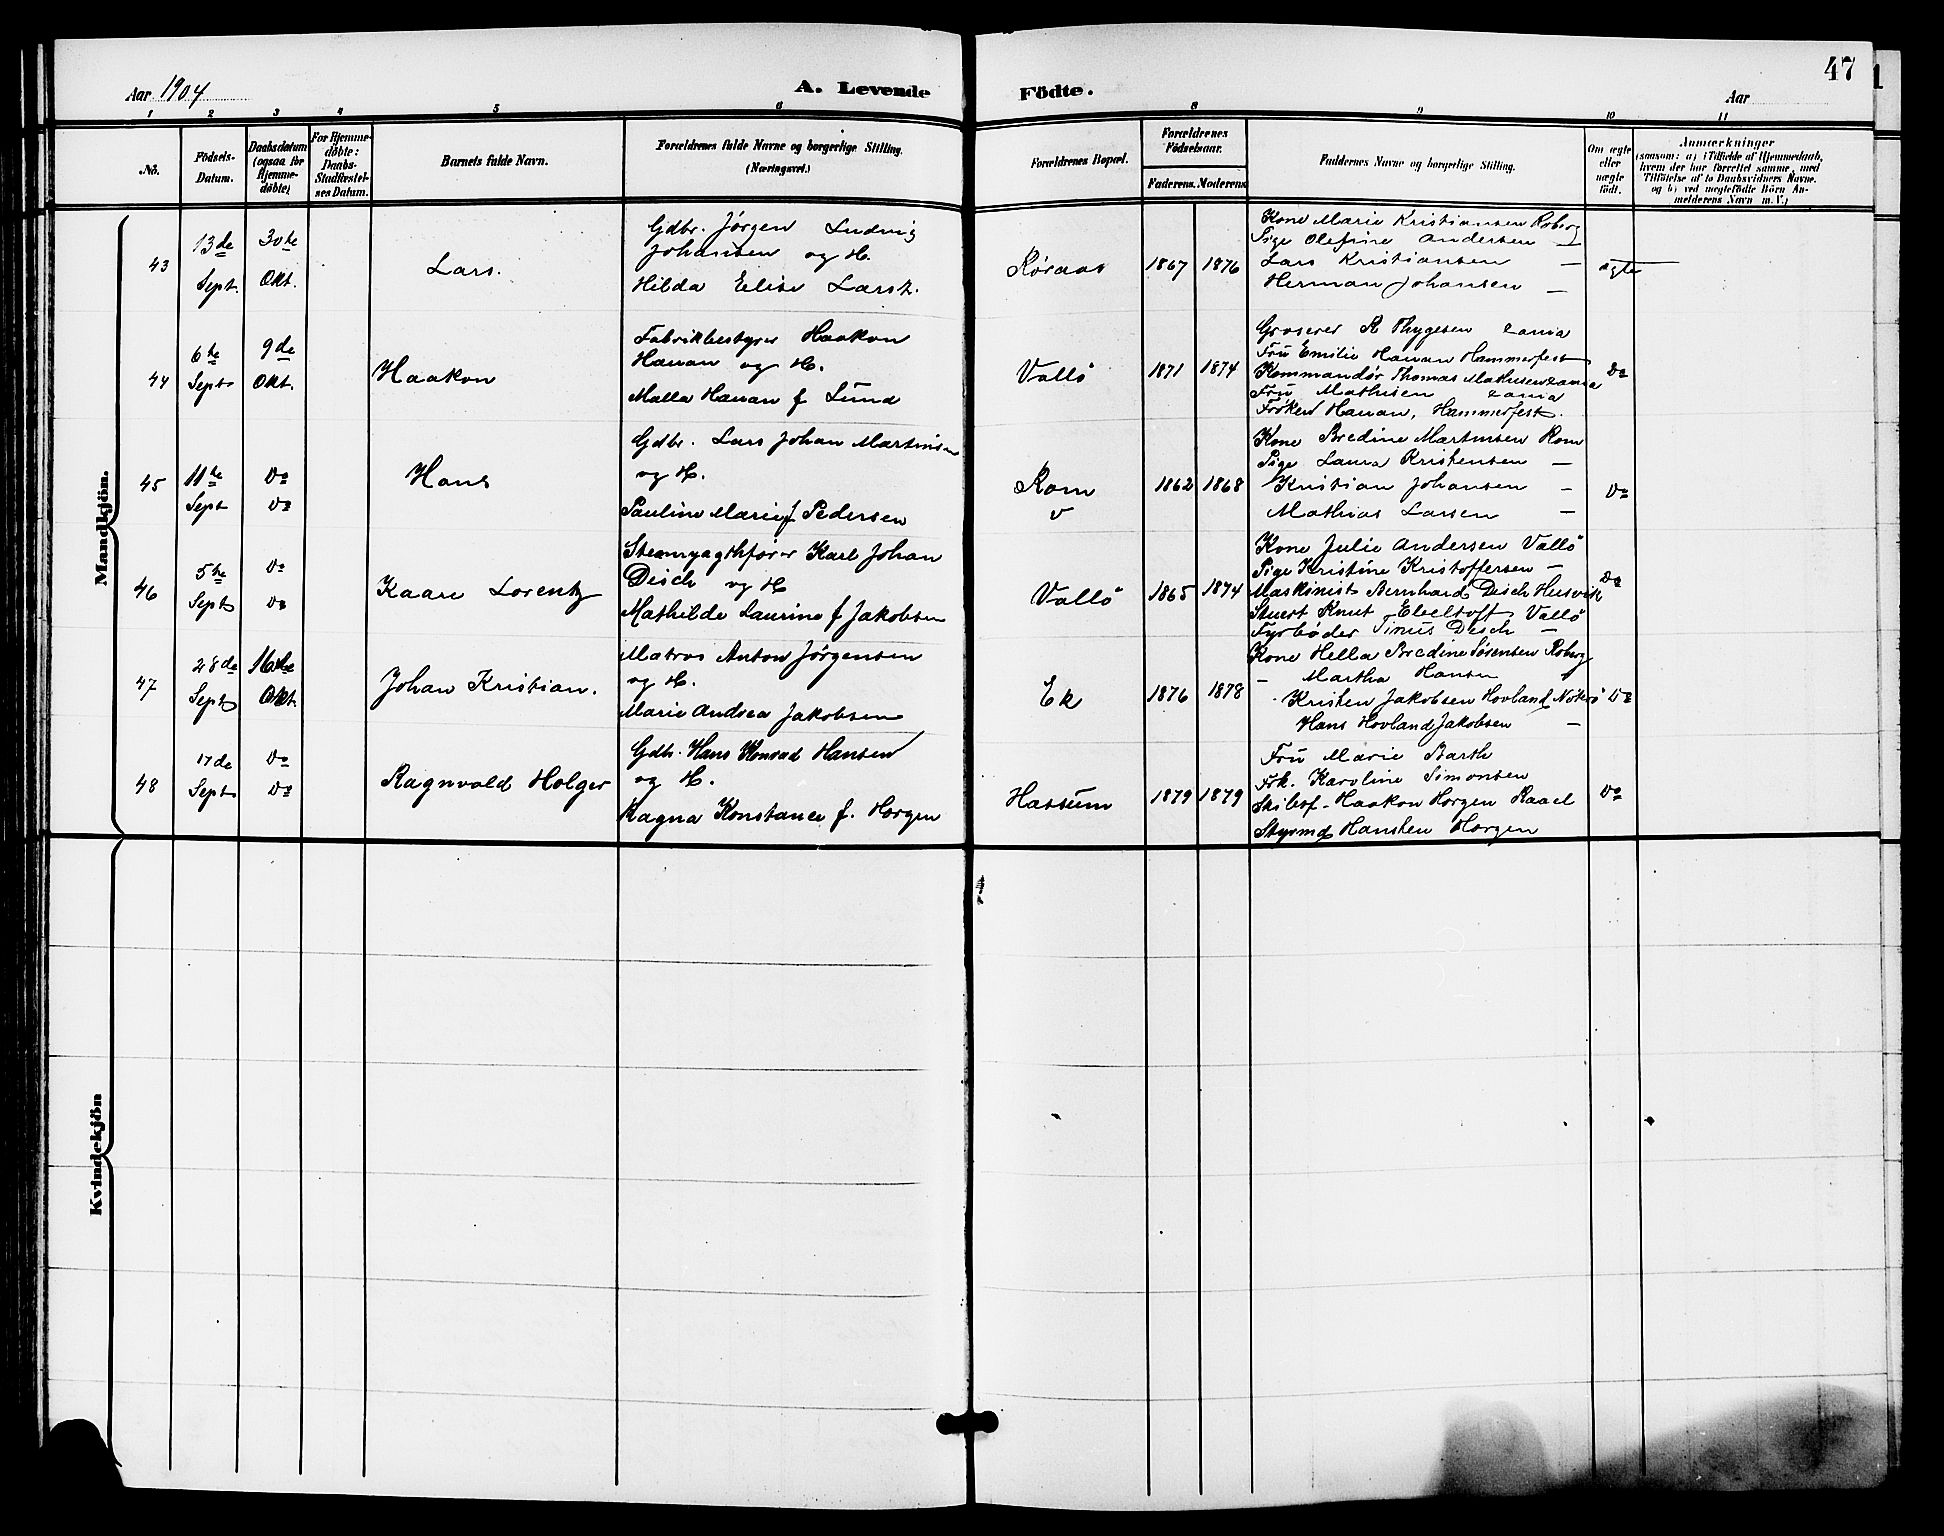 47
Aar 1904
A. Levende
Födte.
Aar
1 2 3 4 5 6 8 9 10 11
No.
Födsels-
Datum.
Daabsdatum
(ogsaa for
Hjemme-
döbte)
For Hjemme-
döbte:
Daabs-
Stadfæstel-
ses Datum.
Barnets fulde Navn.
Forældrenes fulde Navne og borgerlige Stilling.
(Næringsvei.)
Forældrenes Bopæl.
Forældrenes
Födselsaar.
Faderens. Moderens.
Faddernes Navne og borgerlige Stilling.
Om ægte
eller
uægte
födt.
Anmærkninger
(saasom: a) i Tilfælde af Hjemmedaab,
hvem der har forrettet samme, med
Tilföielse af to Daabsvidners Navne.
og b) ved uægtefödte Börn An-
melderens Navn m. V.)
Mandkjön.
43
13de
Sept.
30te
Okt.
Lars.
Gdbr. Jørgen Ludvig
Johansen og H.
Hilda Elise Larsd.
Røraas
1867 1876
Kone Marie Kristiansen Roberg
Pige Olefine Andersen —
Lars Kristiansen —
Herman Johansen —
ægte
44
6te
Sept
9de
Okt.
Haakon
Fabrikbestyrer Haakon
Hanan og H.
Malla Hanan f Lund
Vallö
1871 1874
Groserer R Thygesen
Fru Emilie Hanan Hammerfest
Kommandør Thomas Mathisen
Fru Mathisen
Frøken Hanan, Hammerfest.
Do
45
11te
Sept
Do
Do
Hans
Gdbr. Lars Johan Martinsen
og H.
Pauline Marie f Pedersen
Rom
v
1862 1868
Kone Bredine Martinsen Rom
Pige Laura Kristensen —
Kristian Johansen —
Mathias Larsen —
Do
46
5te
Sept
Do
Do
Kaare Lorentz
Steamyagthfører Karl Johan
Disch og H
Mathilde Laurine f Jakobsen
Vallö
1865 1874
Kone Julie Andersen Vallö
Pige Kristine Kristoffersen —
Maskinist Bernhard Disch Husvik
Stuert Knut Ebeltoft Vallö
Fyrbøder Tinus Disch —
Do
47
28de
Sept
16de
Okt.
Johan Kristian.
Matros Anton Jörgensen
og H.
Marie Andrea Jakobsen
Ek
1876 1878
Kone Hella Bredine Sørensen Roberg
— Martha Hansen
Kristen Jakobsen Hovland Nøtterö
Hans Hovland Jakobsen —
Do
48
17de
Sept
Do
Do
Ragnvald Holger
Gdb. Hans Konrad Hansen
og H.
Ragna Konstance f. Horgen
Hassum
1879 1879
Fru Marie Barth
Frk. Karoline Simonsen
Skibsf. Haakon Horgen Raael
Styrmd Hansten Horgen
Do
Kvindekjön